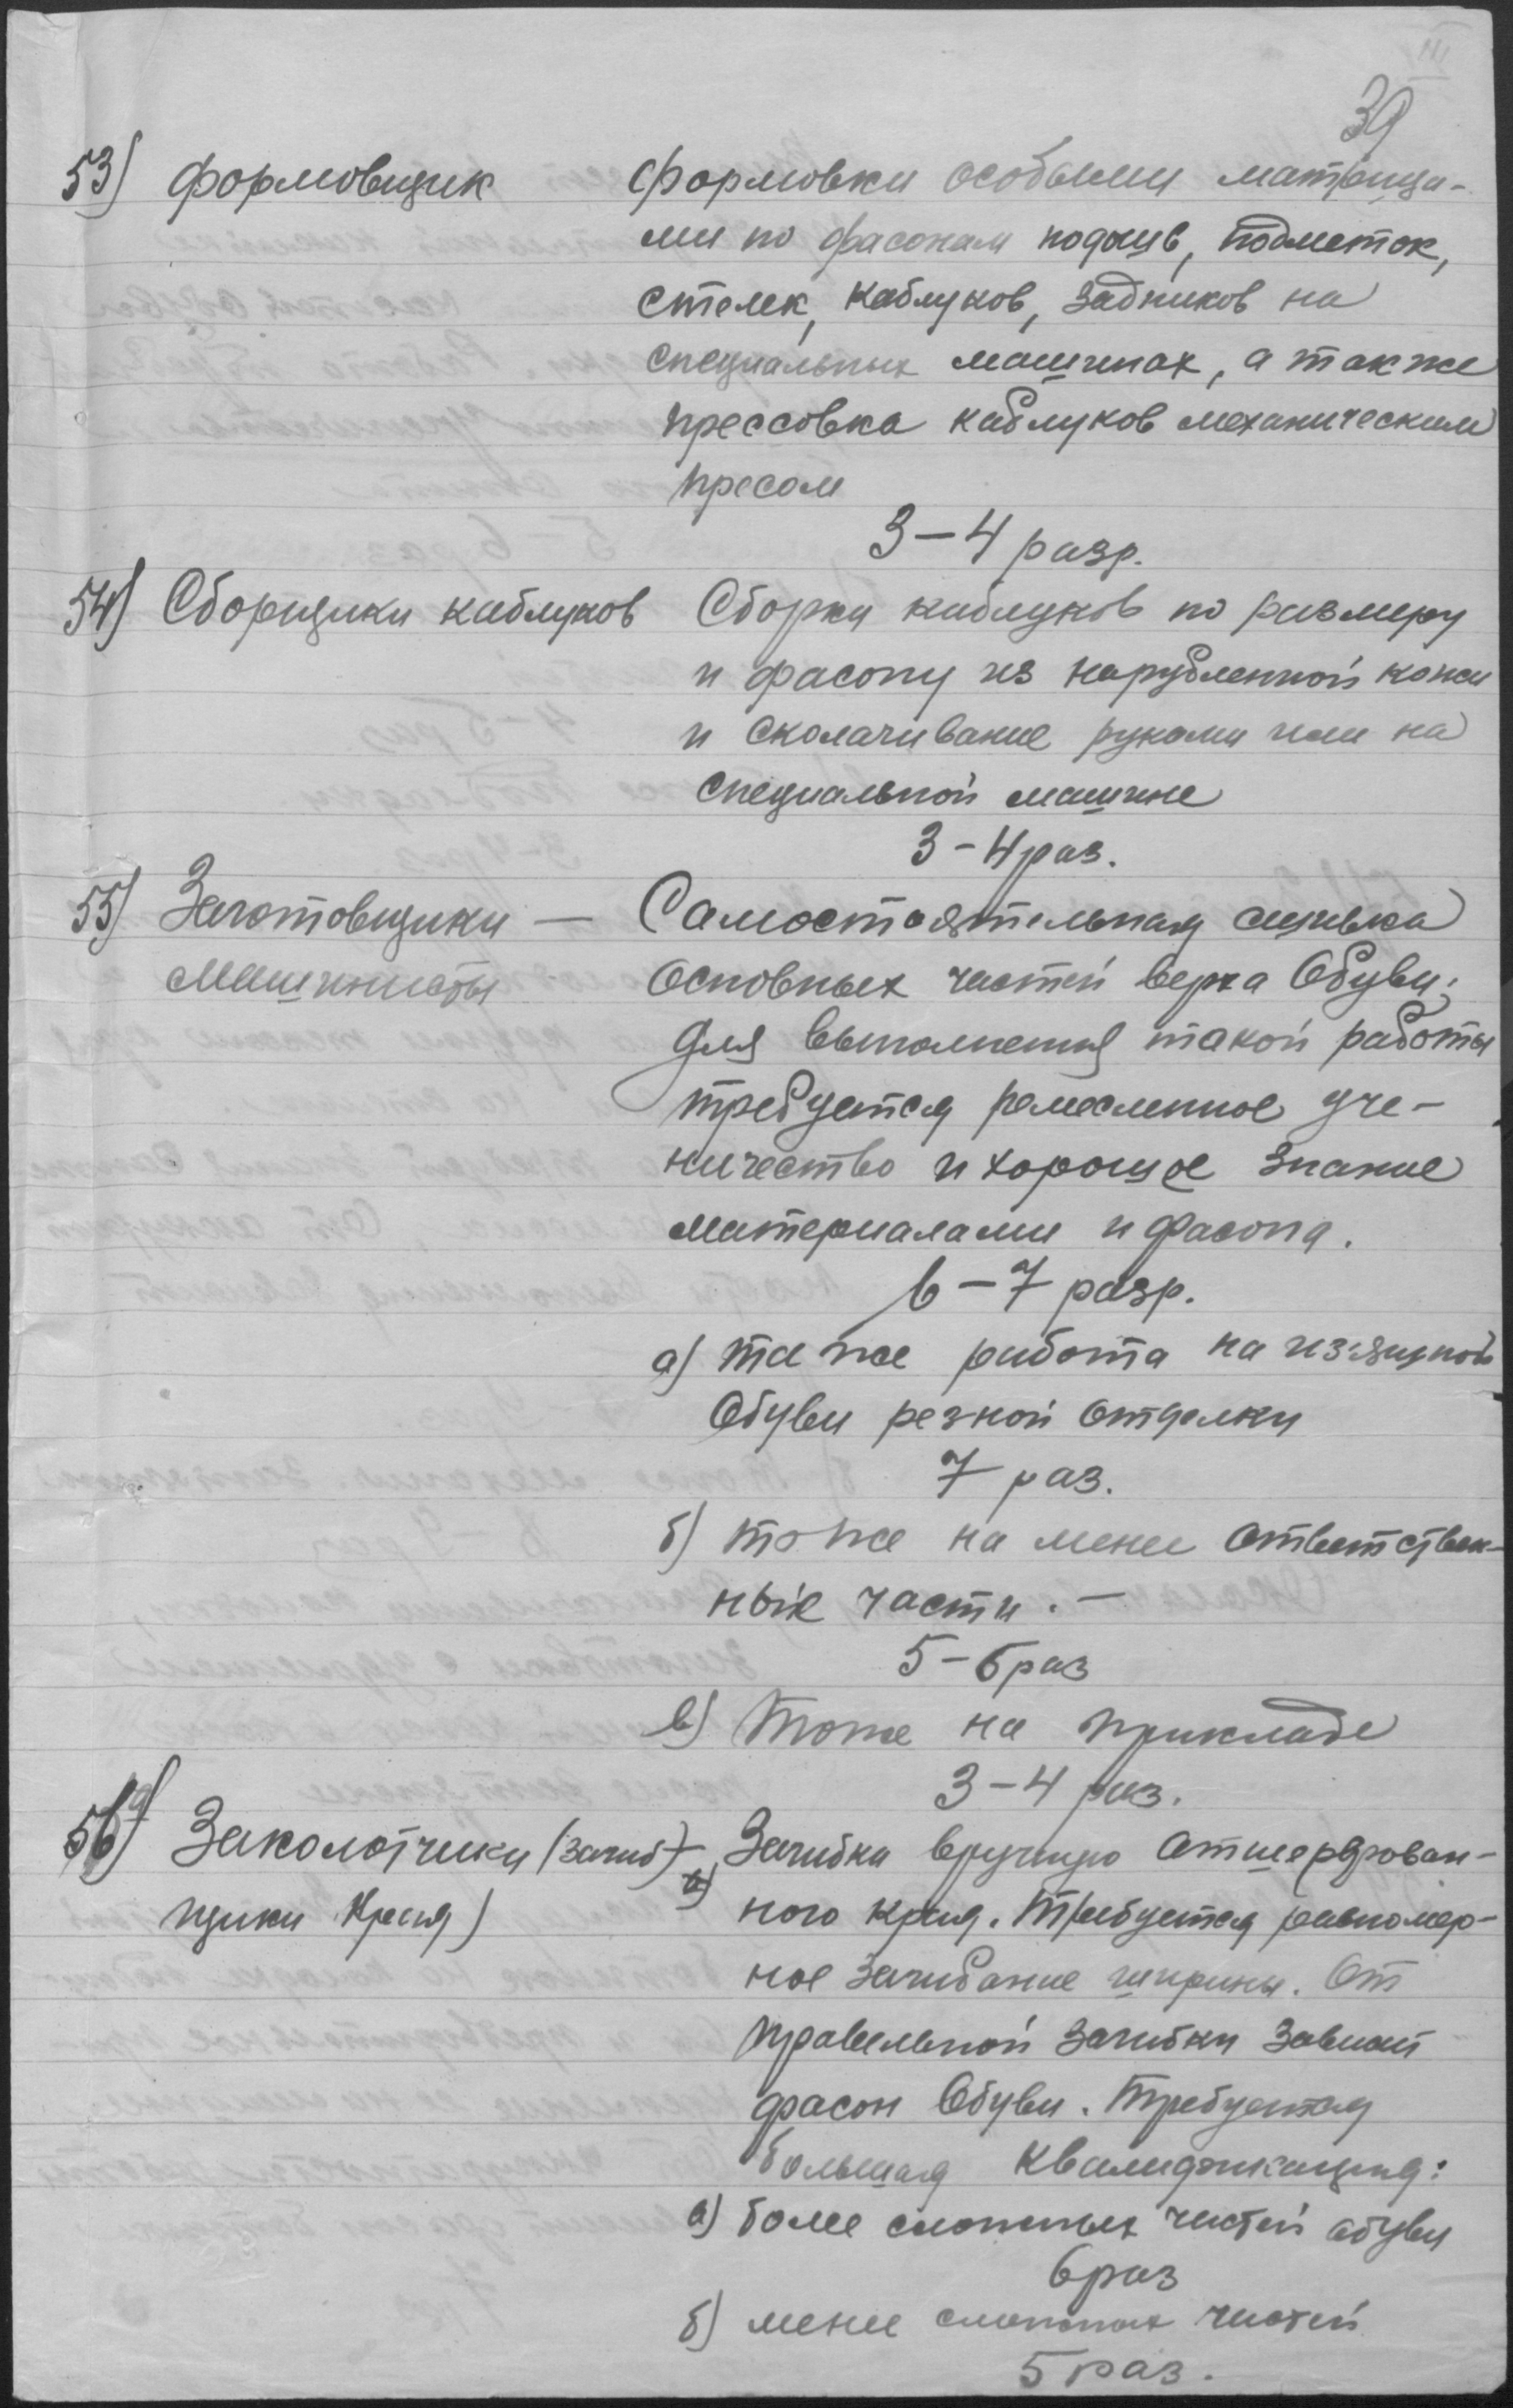 III
39
53) формовщик формовки особыми матрица-
ми по фасонам подошв, подметок,
стелек, каблуков, задников на
специальных машинах, а также
прессовка каблуков механическим
пресом
3–4 разр.
54) Сборщики каблуков Сборка каблуков по размеру
и фасону из нарубленной кожи
и сколачивание руками или на
специальной машине
3–4 раз.
55) Заготовщики — Самостоятельная сшивка
машинисты основных частей верха обуви;
для выполнения такой работы
требуется ремесленное уче-
ничество и хорошое знание
материалами и фасона.
6–7 разр.
а) та же работа на изящной
обуви резной отделки
7 раз.
б) то же на менее ответствен-
ные части. —
5–6 раз
в) тоже на прикладе
3–4 раз.
56) Заколотчики (загиб- Загибка вручную отшерфован-
щики края) ного края. Требуется равномер-
ное загибание ширины. От
правильной загибки зависит
фасон обуви. Требуется
большая квалификация:
а) более сложных частей обуви
6 раз
б) менее сложных частей
5 раз.